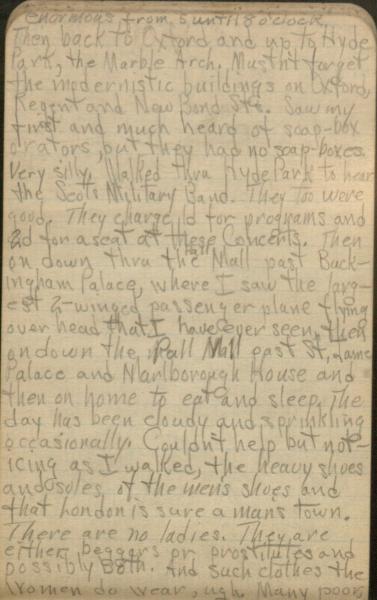 enormous from 5 until 8 o'clock.
Then back to Oxford and up to Hyde
Park, the Marble Arch. Mustn't forget
the modernistic buildings on Oxford,
Regent and New Bond Sts. Saw my
first and much heard of soap-box
orators but they had no soap-boxes.
Very silly. Walked thru Hyde Park to hear
the Scots Military Band. They too were
good. They charge 1d for programs and
2d for a seat at these Concerts. Then
on down thru the Mall past Buck-
ingham Palace, where I saw the larg-
est 2-winged passenger plane flying
over head that I have ever seen, then
on down the Pall Mall past St. James
Palace and Marlborough House and
then on home to eat and sleep. The
day has been cloudy and sprinkling
occasionally. Couldn't help but not-
icing as I walked, the heavy shoes
and soles of the men's shoes and
that London is sure a mans town.
There are no ladies. They are
either beggers or prostitutes and
possibly both. And such clothes the
women do wear, ugh. Many poor